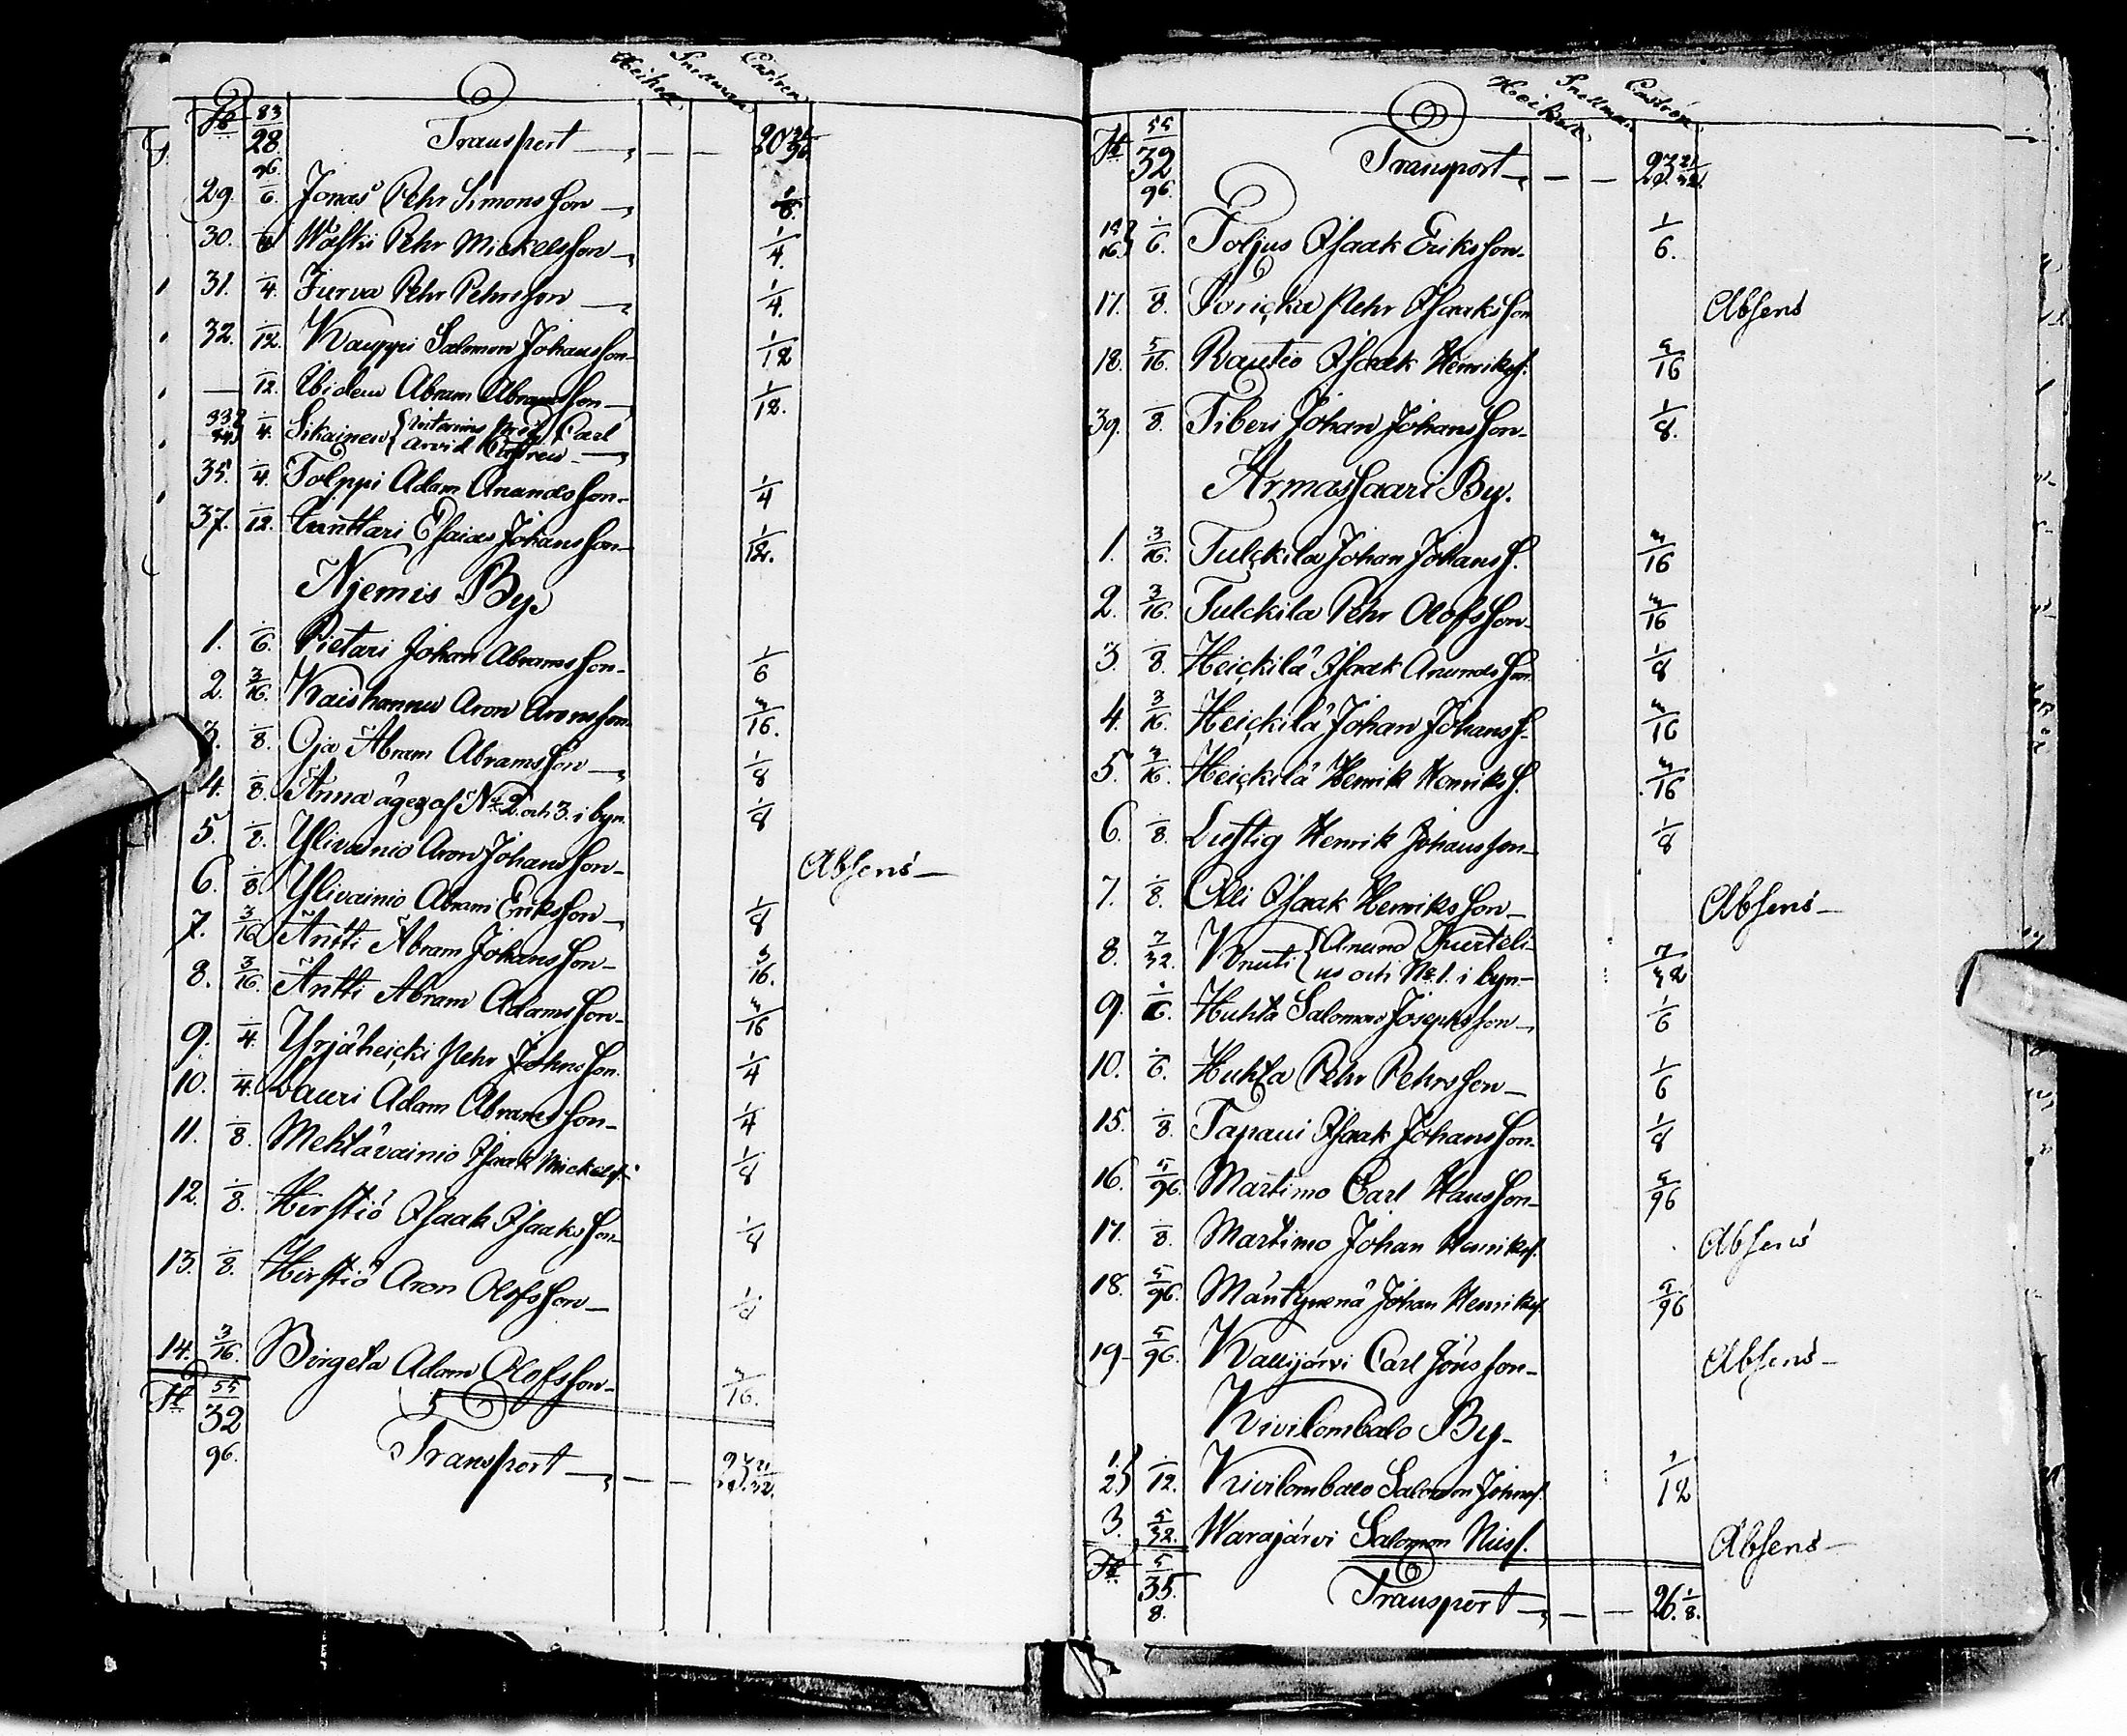 Heikel Snellman Castren
83
28 Transport — — — 20
96
29. 1/6. Jonas Pehr Simonsson — 1/6.
30. Pehr Mickelsson — 1/4.
31. 1/4. Jurva Pehr Pehrsson — 1/4.
32. 1/12. Kauppi Salomon Johansson — 1/12
— 1/12. Ibidem Abram Abramsson — 1/12.
33 34 1/4. Sikainen Carl
Arvid Castren —
35. 1/4. Tolppi Adam Anundsson — 1/4
37. 1/12. Esaias Johansson — 1/12.
Njemis By.
1. 1/6. Pietari Johan Abramsson — 1/6
2. 3/16. Aron Aronsson 3/16.
3. 1/8. Oja Abram Abramsson — 1/8
4. 1/8. Anna äges af No 2 och 3. i byn 1/8
5. 1/8. Ylivainio Aron Johansson — Absens —
6. 1/8. Ylivainio Abram Eriksson — 1/8
7. 3/16 Antti Abram Johansson — 3/16.
8. 3/16. Antti Abram Adamsson — 3/16
9. 1/4. Yrjäheicki Pehr Johansson. 1/4
10. 1/4. Lauri Adam Abramsson — 1/4
11. 1/8. Mehtävainio Isaak Mickelss. 1/8
12. 1/8. Hirstiö Isaak Isaaksson 1/8
13. 1/8. Hirstiö Aron Olofsson — 1/8
14. 3/16. Birgeta Adam Olofsson — 3/16.
55
32
96. Transport — — — 23 21/32.
Heikel Snellman Castrén
55
32 Transport — — — 23 21/32.
96
15 16 1/6. Toljus Isaak Eriksson — 1/6.
17. 1/8. Pehr Isaaksson Absens
18. 5/16. Rautio Isaak Henrikss. 5/16
39. 1/8. Tiberi Johan Johansson — 1/8.
Armassaari By.
1. 3/16. Tulckila Johan Johanss. 3/16
2. 3/16. Tulckila Pehr Olofsson — 3/16
3. 1/8. Heickilä Isaak Anundsson 1/8
4. 3/16. Heickilä Johan Johanss. 3/16
5. 3/16. Heickilä Henrik Henrikss. 3/16
6. 1/8. Lustig Henrik Johansson — 1/8
7. 1/8. Olli Isaak Henriksson — Absens —
8. 7/32. Knuti Anund Kurteli-
us och No 1. i byn — 7/32
9. 1/6. Huhta Salomon Josephsson — 1/6
10. 1/6. Huhta Pehr Pehrsson — 1/6
15. 1/8. Tapani Isaak Johansson. 1/8
16. 5/96. Martimo Carl Hansson — 5/96
17. 1/8. Martimo Johan Henrikss. Absens
18. 5/96. Mäntymenä Johan Henrikss. 5/96
19 — 5/96. Kallijärvi Carl Jönsson — Absens —
Kivilombalo By —
1. 2. 1/12. Kivilombalo Salomon Johanss. 1/12
3. 5/32. Warajärvi Salomon Nilss. Absens —
5
35. Transport — — — 26. 1/8.
8.